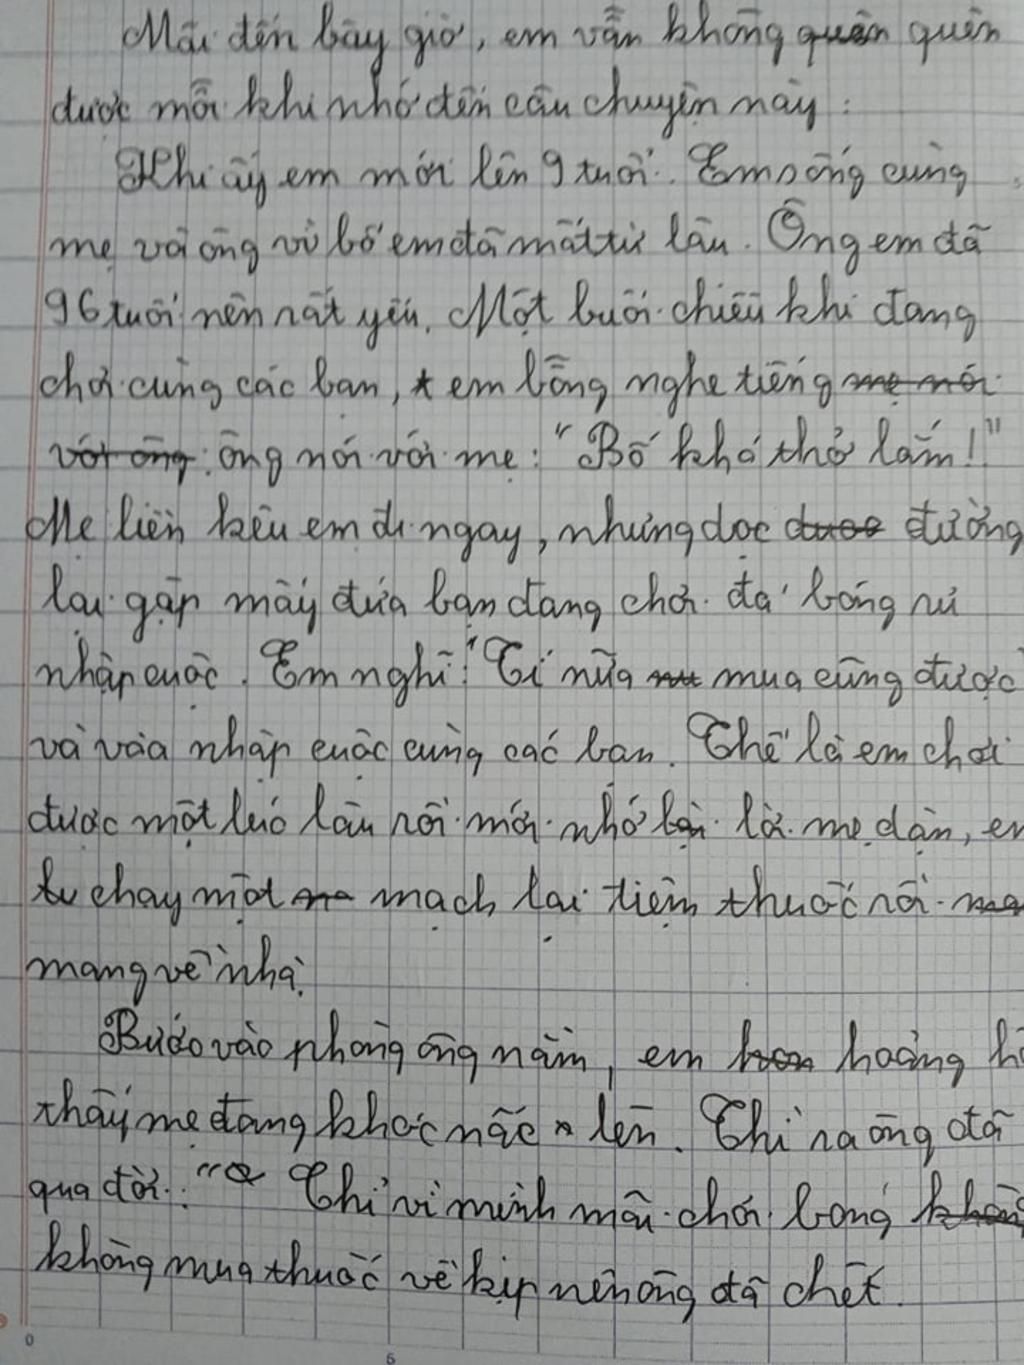 Mãi đến bây giờ, em vẫn không quên quên
được mỗi khi nhớ đến câu chuyện này:
Khi ấy em mới lên 9 tuổi. Em sống cùng
mẹ và ông vì bố em đã mất từ lâu. Ông em đã
96 tuổi nên rất yếu. Một buổi chiều khi đang
chơi cùng các bạn, em bỗng nghe tiếng mẹ nói
với ông: ông nói với mẹ: "Bố khó thở lắm!"
Mẹ liền kêu em đi ngay, nhưng dọc được đường
lại gặp mấy đứa bạn đang chơi đá bóng rủ
nhập cuộc. Em nghĩ: "Tí nữa mua cũng được
và vào nhập cuộc cùng các bạn. Thế là em chơi
được một lúc lâu rồi mới nhớ lại lời mẹ dặn, em
chạy một mạch lại tiệm thuốc rồi
mang về nhà.
Bước vào phòng ông nằm, em hoảng
thấy mẹ đang khóc nấc lên. Thì ra ông đã
qua đời. " Chỉ vì mình mãi chơi bóng không
không mua thuốc về kịp nên ông đã chết.
0
5